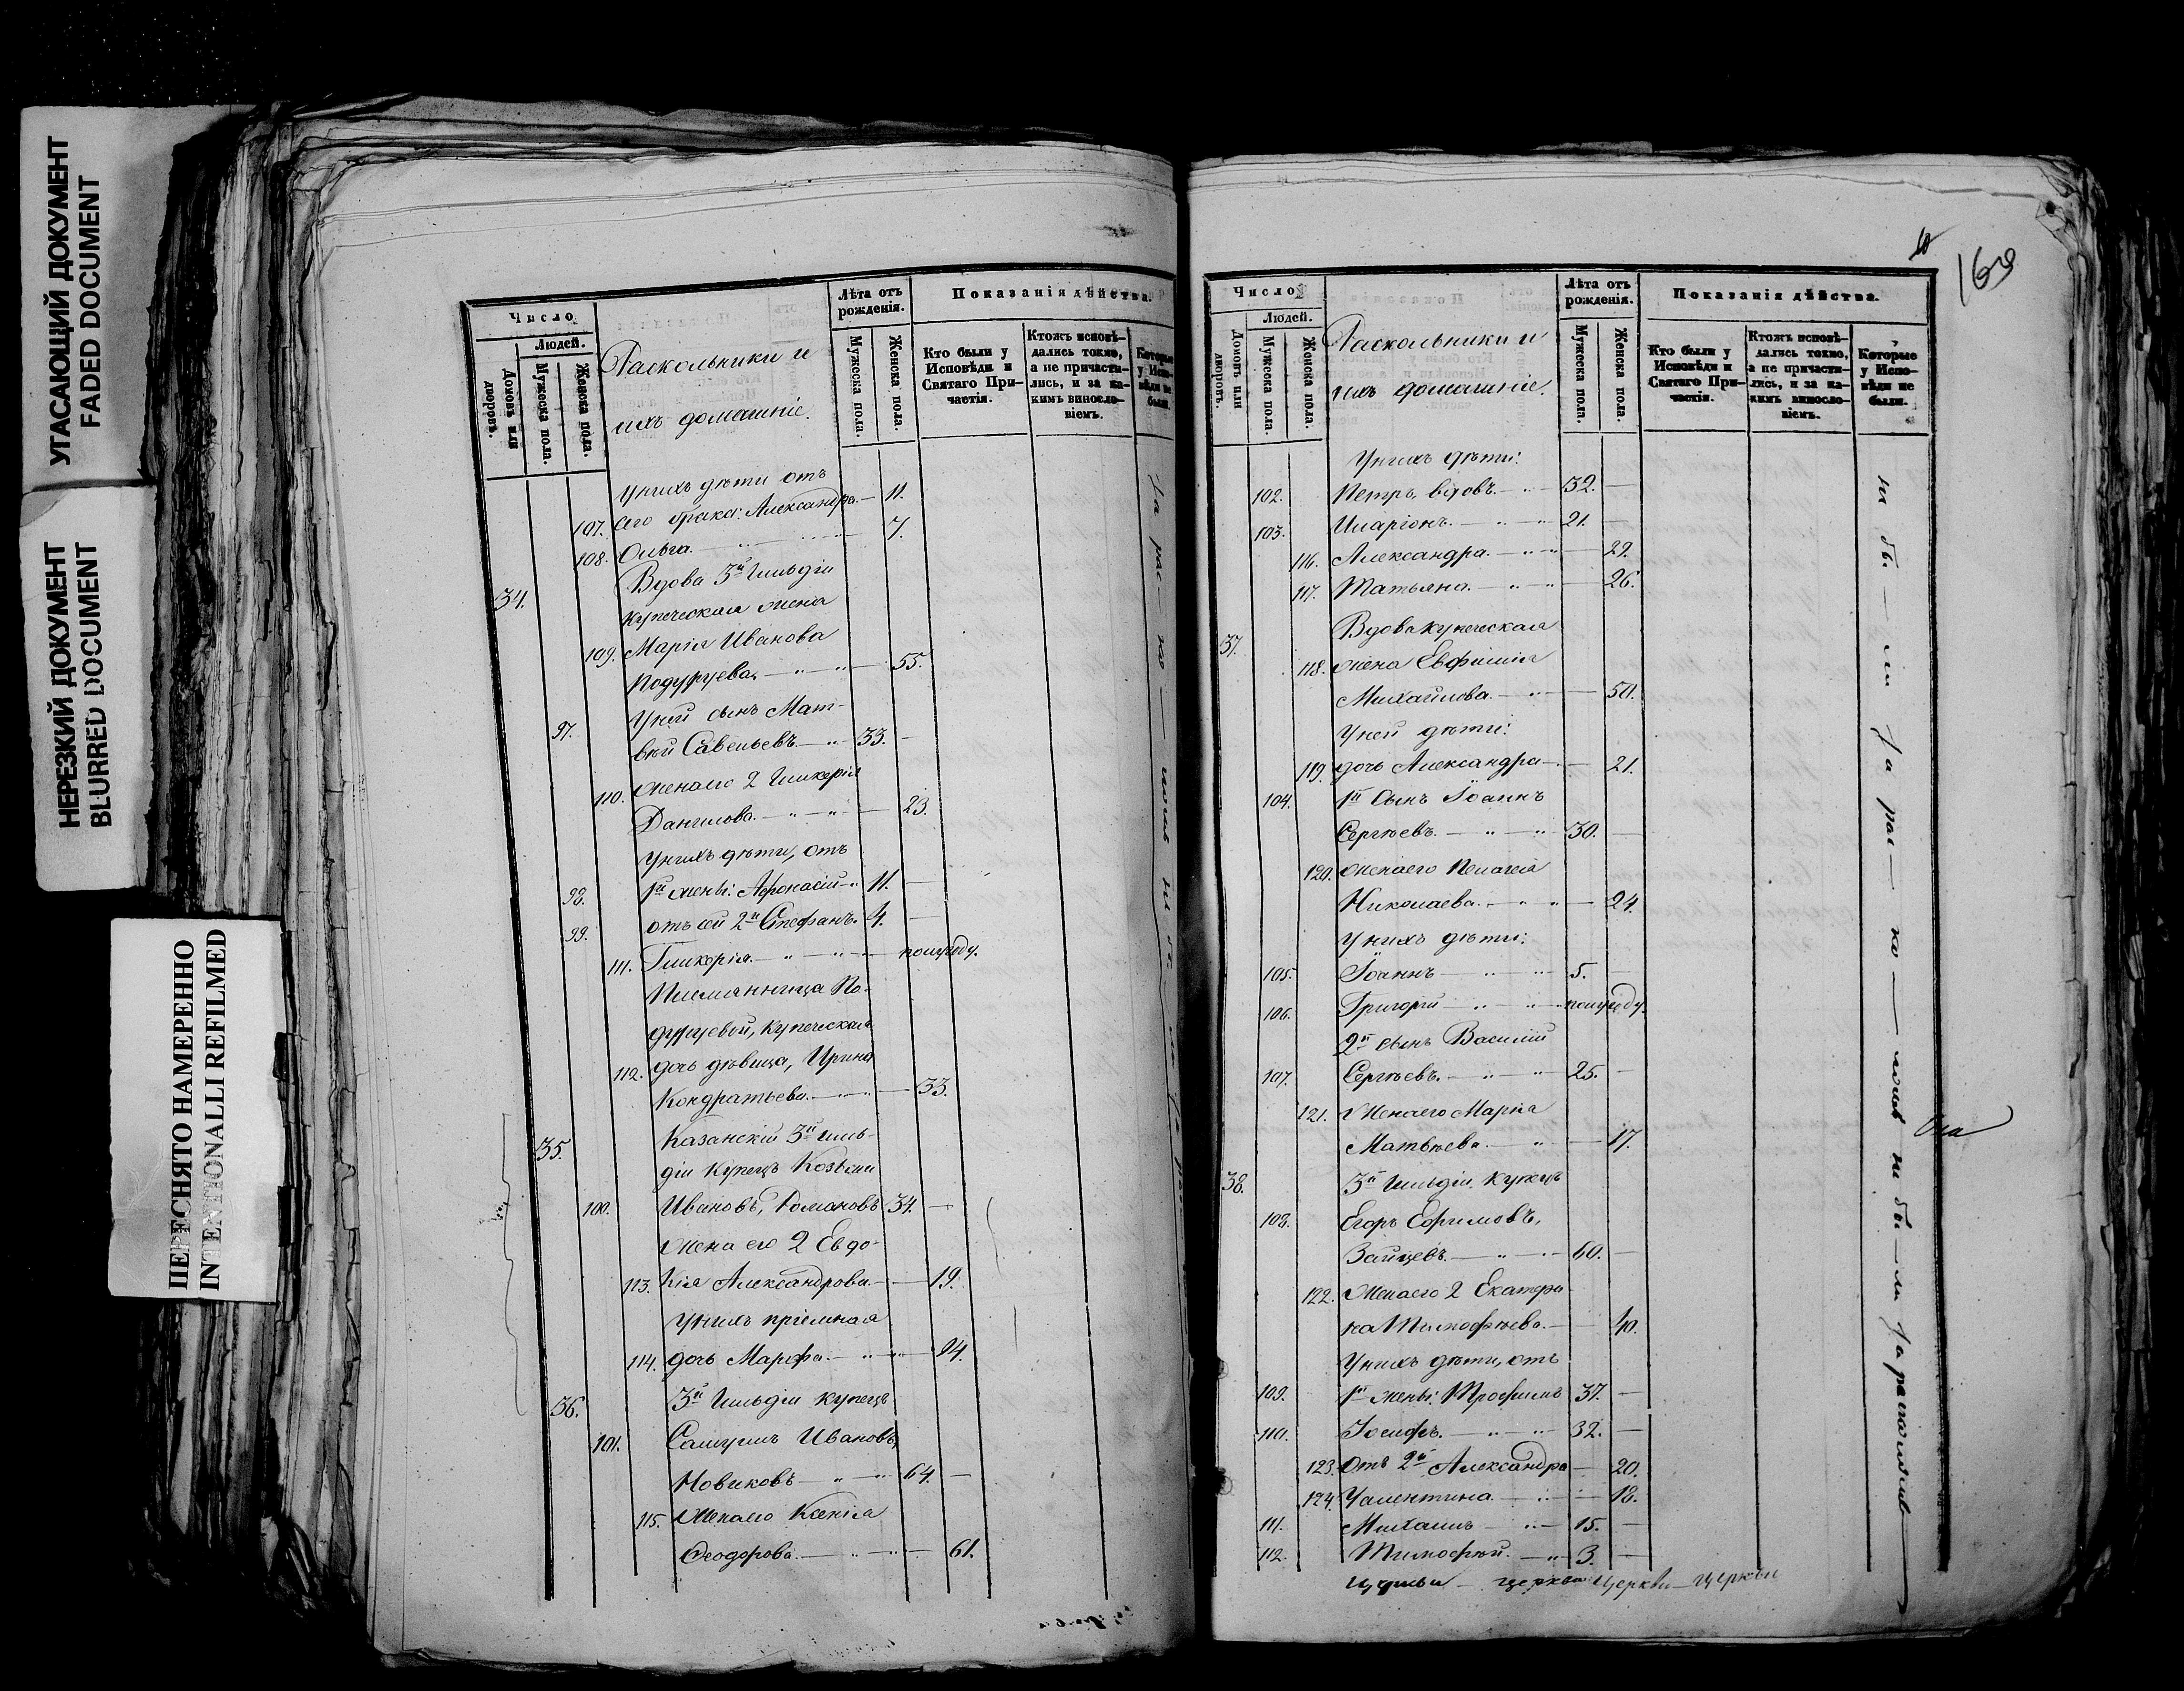 УГАСАЮЩИЙ ДОКУМЕНТ
FADED DOCUMENT
НЕРЕЗКИЙ ДОКУМЕНТ
BLURRED DOCUMENT
ПЕРЕСНЯТО НАМЕРЕННО
INTENTIONALLI REFILMED
Число
Людей.
Домовъ или дворовъ.
Мужеска пола.
Женска пола.
Раскольники и
ихъ домашніе.
Лѣта отъ рожденія.
Мужеска пола.
Женска пола.
Показанія дѣйства.
Кто были у Исповѣди и Святаго Причастія.
Ктожъ исповѣдались токмо, а не причастились, и за какимъ винословіемъ.
Которые у Исповѣди не были.
У нихъ дѣти отъ
107. сего брака: Александра. — 11.
108. Ольга. — 7.
34. Вдова 3й Гильдіи
купеческая жена
109. Марія Иванова
Подуруева. — 55.
97. У ней сынъ Мат-
вѣй Савельевъ. — 33. —
110. Жена его 2 Гликерія
Данилова. — 23.
У нихъ дѣти, отъ
98. 1й жены: Афонасій — 11. —
99. отъ сей 2й Стефанъ. 4. —
111. Гликерія. — полугоду.
Племянница По-
дуруевой, купеческая
112. дочь дѣвица, Ирина
Кондратьева. — 33.
35. Казанскій 3й Гиль-
діи купецъ Козьма
100. Ивановъ, Романовъ 34. —
Жена его 2 Евдо-
113. кія Александрова. — 19.
У нихъ пріемная
114. дочь Марфа. — 24.
36. 3й Гильдіи купецъ
101. Самуилъ Ивановъ,
Новиковъ — 64. —
115. Жена его Ксенія
Ѳеодорова. — 61.
за рас — ко — ломъ
169
Число
Людей.
Домовъ или дворовъ.
Мужеска пола.
Женска пола.
Раскольники и
ихъ домашніе.
Лѣта отъ рожденія.
Мужеска пола.
Женска пола.
Показанія дѣйства.
Кто были у Исповѣди и Святаго Причастія.
Ктожъ исповѣдались токмо, а не причастились, и за какимъ винословіемъ.
Которые у Исповѣди не были.
У нихъ дѣти:
102. Петръ, вдовъ. — 32. —
103. Иларіонъ. — 21. —
116. Александра. — 29.
117. Татьяна. — 26.
37. Вдова купеческая
118. жена Евфимія
Михайлова. — 50.
У ней дѣти:
119. дочь Александра — 21.
104. 1й сынъ Іоаннъ
Сергѣевъ. — 30. —
120. Жена его Пелагея
Николаева. — 24.
У нихъ дѣти:
105. Іоаннъ — 5. —
106. Григорій — полугоду.
2й сынъ Василій
107. Сергѣевъ. — 25. —
121. Жена его Марія
Матвѣева. — 17.
38. 3й Гильдіи купецъ
108. Егоръ Ефимовъ,
Зайцевъ. — 60. —
122. Жена его 2 Екатери-
на Тимофѣева. — 40.
У нихъ дѣти, отъ
109. 1й жены: Трофимъ 37. —
110. Іосифъ. — 32. —
123. Отъ 2й Александра — 20.
124. Уалентина. — 18.
111. Михаилъ — 15. —
112. Тимофѣй. — 3. —
не бы — ли за рас — ко — ломъ не бы — ли за расколомъ
церкви — церкви церкви — церкви